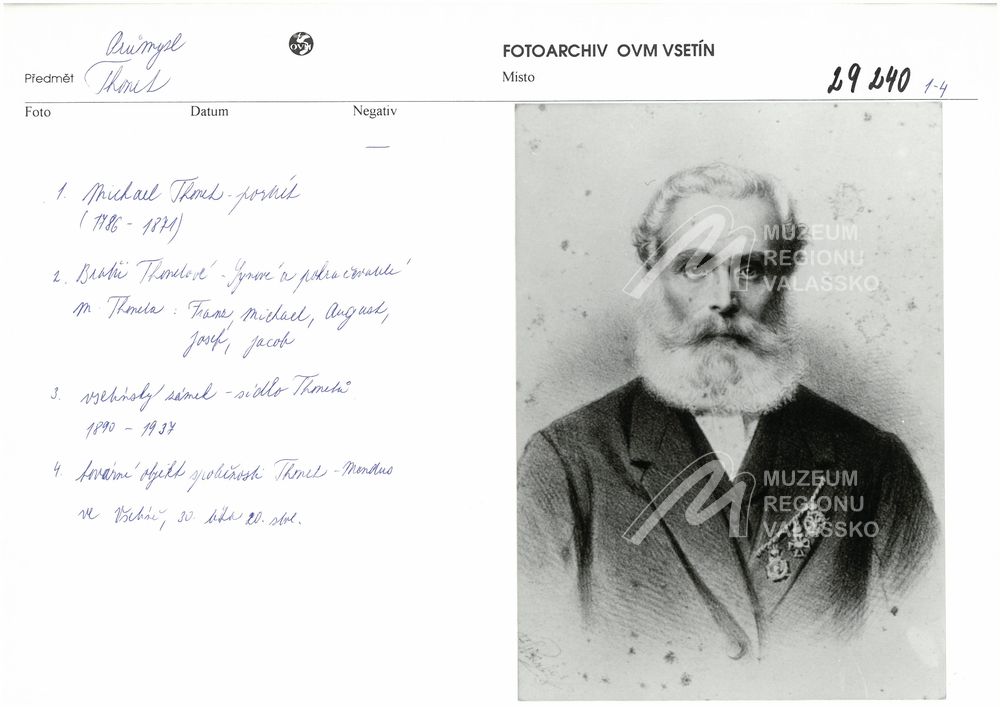 Průmysl
OVM
FOTOARCHIV OVM VSETÍN
Předmět Thonet
Místo
29 240 1-4
Foto Datum Negativ
—
1. Michael Thonet - portrét
(1786 - 1871)
2. Bratři Thonetové - synové a pokračovatelé
M. Thoneta: Franz, Michael, August,
Josef, Jacob
3. vsetínský zámek - sídlo Thonetů
1890 - 1937
4. tovární objekt společnosti Thonet - Mundus
ve Vsetíně, 30. léta 20. stol.
MUZEUM
REGIONU
VALAŠSKO
MUZEUM
REGIONU
VALAŠSKO